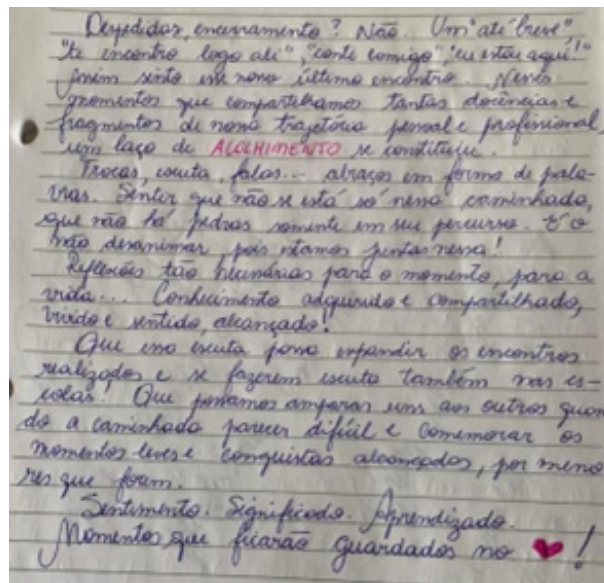 Despedidas, encerramento? Não. Um "até breve",
"te encontro logo ali", "conte comigo", "eu estou aqui!"
Assim sinto em nosso último encontro. Nesses
momentos que compartilhamos tantas docências e
fragmentos de nossa trajetória pessoal e profissional,
um laço de ACOLHIMENTO se constituiu.
Trocas, escuta, falas... abraços em forma de pala-
vras. Sentir que não se está só nessa caminhada,
que não há pedras somente em seu percurso. É o
não desanimar, pois estamos juntas nessa!
Reflexões tão necessárias para o momento, para a
vida... Conhecimento adquirido e compartilhado,
vivido e sentido, alcançado!
Que essa escuta possa expandir os encontros
realizados e se fazerem escuta também nas es-
colas! Que possamos amparar uns aos outros quan-
do a caminhada parecer difícil e comemorar os
momentos leves e conquistas alcançadas, por meno-
res que forem.
Sentimento. Significado. Aprendizado.
Momentos que ficarão guardados no ♥!